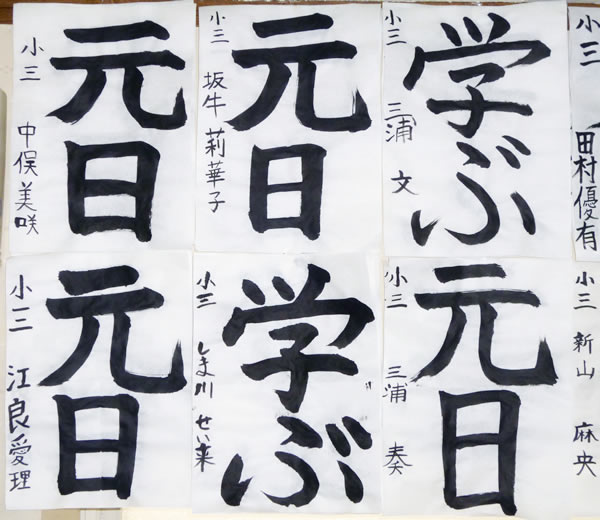 元日
小三 中俣美咲
元日
小三 坂牛莉華子
学ぶ
小三 三浦文
小三 田村優有
元日
小三 江良愛理
学ぶ
小三 しま川せい来
元日
小三 三浦奏
小三 新山麻央